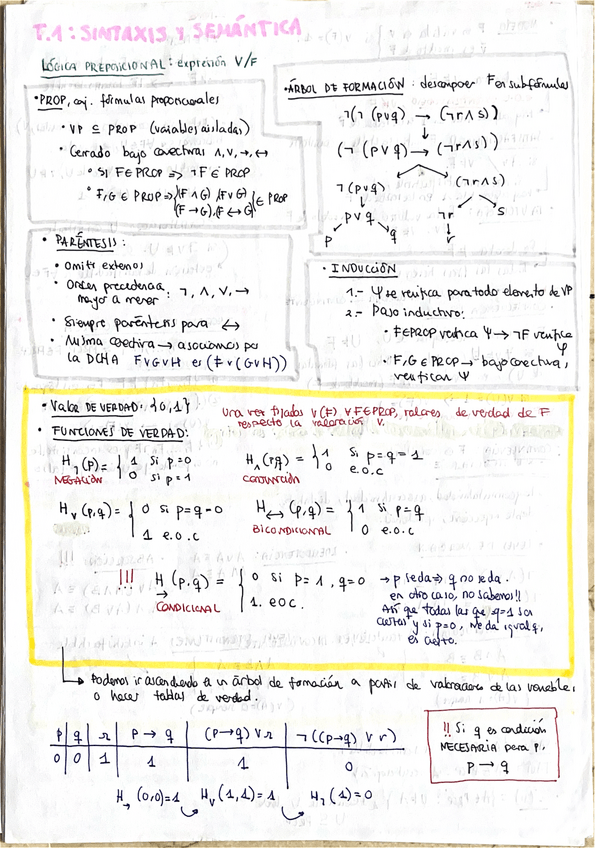 T.1: SINTAXIS Y SEMÁNTICA
LÓGICA PREPOSICIONAL: expresión V/F
• PROP, cnj. fórmulas proporcionales
• VP ⊆ PROP (variables aisladas)
• Cerrado bajo conectivas ∧, ∨, →, ↔
• Si F∈PROP ⇒ ¬F ∈ PROP
• F, G ∈ PROP ⇒ (F ∧ G) (F∨G)
(F → G), (F ↔ G) ∈ PROP
• ÁRBOL DE FORMACIÓN: descomponer F en subfórmulas
¬(¬ (p∨q) → (¬r∧s))
(¬ (p∨q) → (¬r∧s))
¬(p∨q) (¬r∧s)
p∨q ¬r s
p q r
• PARÉNTESIS:
• Omitir externos
• Orden precedencia mayor a menor: ¬, ∧, ∨, →
• Siempre paréntesis para ↔
• Misma conectiva → asociamos por
la DCHA F∨G∨H es (F∨(G∨H))
• INDUCCIÓN
1.- Ψ se verifica para todo elemento de VP
2.- Paso inductivo:
• F∈PROP verifica Ψ → ¬F verifica
Ψ
• F, G ∈ PROP → bajo conectiva,
verifican Ψ
• Valor DE VERDAD: {0,1}
Una vez fijados v(F) ∀F∈PROP, valores de verdad de F
respecto la valoración v.
• FUNCIONES DE VERDAD:
H¬(p) = { 1 si p=0
0 si p=1
NEGACIÓN
H∧(p,q) = { 1 si p=q=1
0 e.o.c
CONJUNCIÓN
H∨(p,q) = { 0 si p=q=0
1 e.o.c
H↔(p,q) = { 1 si p=q
0 e.o.c
BICONDICIONAL
!!! H→(p,q) = { 0 si p=1, q=0
1. eoc.
CONDICIONAL
→ p se da ⇒ q no se da.
en otro caso, no sabemos!!
Así que todas las que q=1 son
ciertas y si p=0, me da igual q,
es cierto.
Podemos ir ascendiendo en un árbol de formación a partir de valoraciones de las variables,
o hacer tablas de verdad.
p q r p → q (p→q) ∨ r ¬((p→q) ∨ r)
0 0 1 1 1 0
H→(0,0)=1 H∨(1,1)=1 H¬(1)=0
!! Si q es condición
NECESARIA para p,
p → q